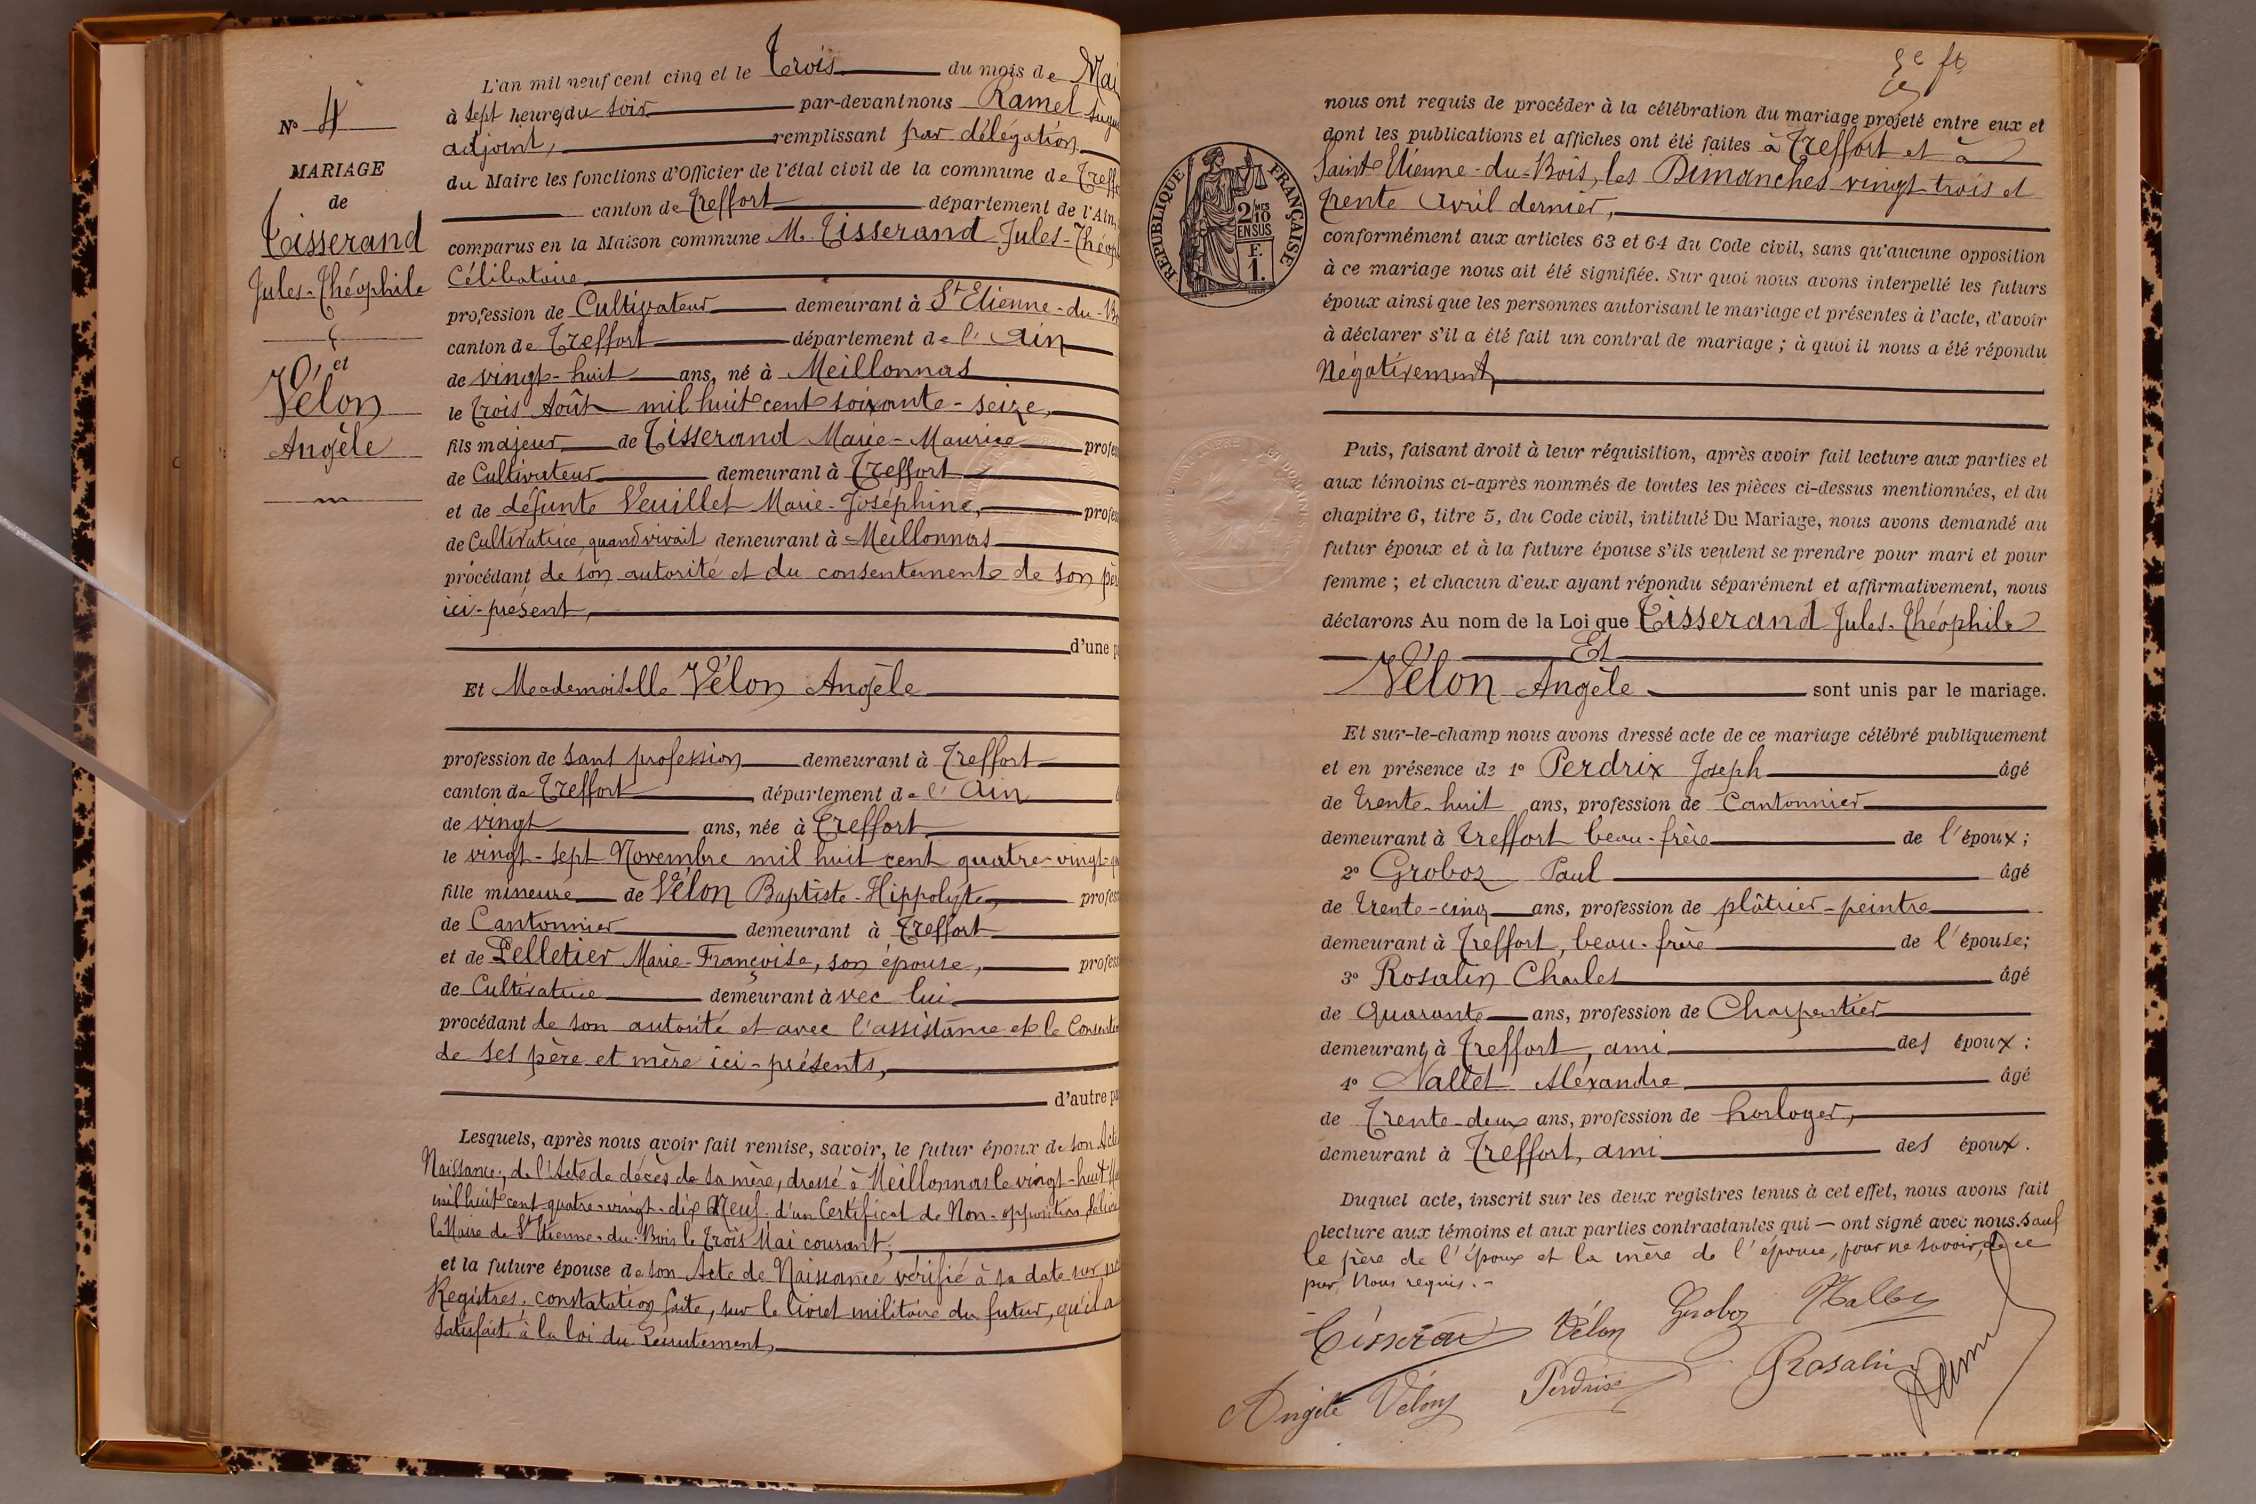 L'an mil neuf cent cinq et le Trois du mois de Mai
à sept heures du soir par-devant nous Ramel
adjoint, remplissant par délégation
du Maire les fonctions d'Officier de l'état civil de la commune de
canton de Treffort département de l'Ain,
comparus en la Maison commune M. Tisserand Jules-
Célibataire
profession de Cultivateur demeurant à St Etienne-du-
canton de Treffort département de l'Ain
de vingt-huit ans, né à Meillonnas
le trois Août mil huit cent soixante-seize,
fils majeur de Tisserand Marie-Maurice
de Cultivateur demeurant à Treffort
et de défunte Veuillet Marie-Joséphine,
de Cultivatrice, quand vivait demeurant à Meillonnas
procédant de son autorité et du consentement de son
ici-présent,
d'une
Et Meademoiselle Vélon Angèle
profession de sans profession demeurant à Treffort
canton de Treffort département de l'Ain
de vingt ans, née à Treffort
le vingt-sept Novembre mil huit cent quatre-vingt-
fille mineure de Vélon Baptiste-Hippolyte,
de Cantonnier demeurant à Treffort
et de Pelletier Marie-Françoise, son épouse,
de Cultivatrice demeurant avec lui
procédant de son autorité et avec l'assistance et le
de ses père et mère ici-présents,
d'autre
Lesquels, après nous avoir fait remise, savoir, le futur époux de son Acte
Naissance; de l'Acte de décès de sa mère, dressé à Meillonnas le vingt-huit
mil huit cent quatre-vingt-dix Neuf. d'un Certificat de Non-opposition
le Maire de St Etienne-du-Bois le Trois Mai courant;
et la future épouse de son Acte de Naissance vérifié à sa date sur
Registres; constatation faite, sur le livret militaire du futur, qu'il a
satisfait à la loi du Recrutement,
No 4
MARIAGE
de
Tisserand
Jules-Théophile
et
Vélon
Angèle
nous ont requis de procéder à la célébration du mariage projeté entre eux et
dont les publications et affiches ont été faites à Treffort et à
Saint Etienne-du-Bois, les Dimanches vingt trois et
trente Avril dernier,
conformément aux articles 63 et 64 du Code civil, sans qu'aucune opposition
à ce mariage nous ait été signifiée. Sur quoi nous avons interpellé les futurs
époux ainsi que les personnes autorisant le mariage et présentes à l'acte, d'avoir
à déclarer s'il a été fait un contrat de mariage; à quoi il nous a été répondu
Négativement
RÉPUBLIQUE FRANÇAISE
2 MES
10
EN SUS
F.
1.
Puis, faisant droit à leur réquisition, après avoir fait lecture aux parties et
aux témoins ci-après nommés de toutes les pièces ci-dessus mentionnées, et du
chapitre 6, titre 5, du Code civil, intitulé Du Mariage, nous avons demandé au
futur époux et à la future épouse s'ils veulent se prendre pour mari et pour
femme; et chacun d'eux ayant répondu séparément et affirmativement, nous
déclarons Au nom de la Loi que Tisserand Jules-Théophile
Et
Vélon Angèle sont unis par le mariage.
Et sur-le-champ nous avons dressé acte de ce mariage célébré publiquement
et en présence de 1o Perdrix Joseph âgé
de trente-huit ans, profession de Cantonnier
demeurant à Treffort beau-frère de l'époux;
2o Groboz Paul âgé
de trente-cinq ans, profession de plâtrier-peintre
demeurant à Treffort, beau-frère de l'épouse;
3o Rosalin Charles âgé
de Quarante ans, profession de Charpentier
demeurant à Treffort, ami des époux:
4o Nallet Aléxandre âgé
de Trente-deux ans, profession de horloger,
demeurant à Treffort, ami des époux.
Duquel acte, inscrit sur les deux registres tenus à cet effet, nous avons fait
lecture aux témoins et aux parties contractantes qui — ont signé avec nous. sauf
le père de l'époux et la mère de l'épouse, pour ne savoir, de ce
par Nous requis.-
Vélon Groboz
Angèle Vélon Perdrix Rosalin